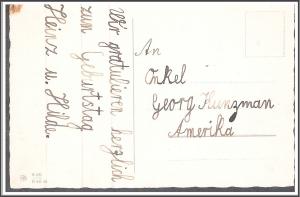 Wir gratulieren herzlich
zum Geburtstag
Heinz u. Hilde.
An
Onkel
Georg Kunzman
Amerika